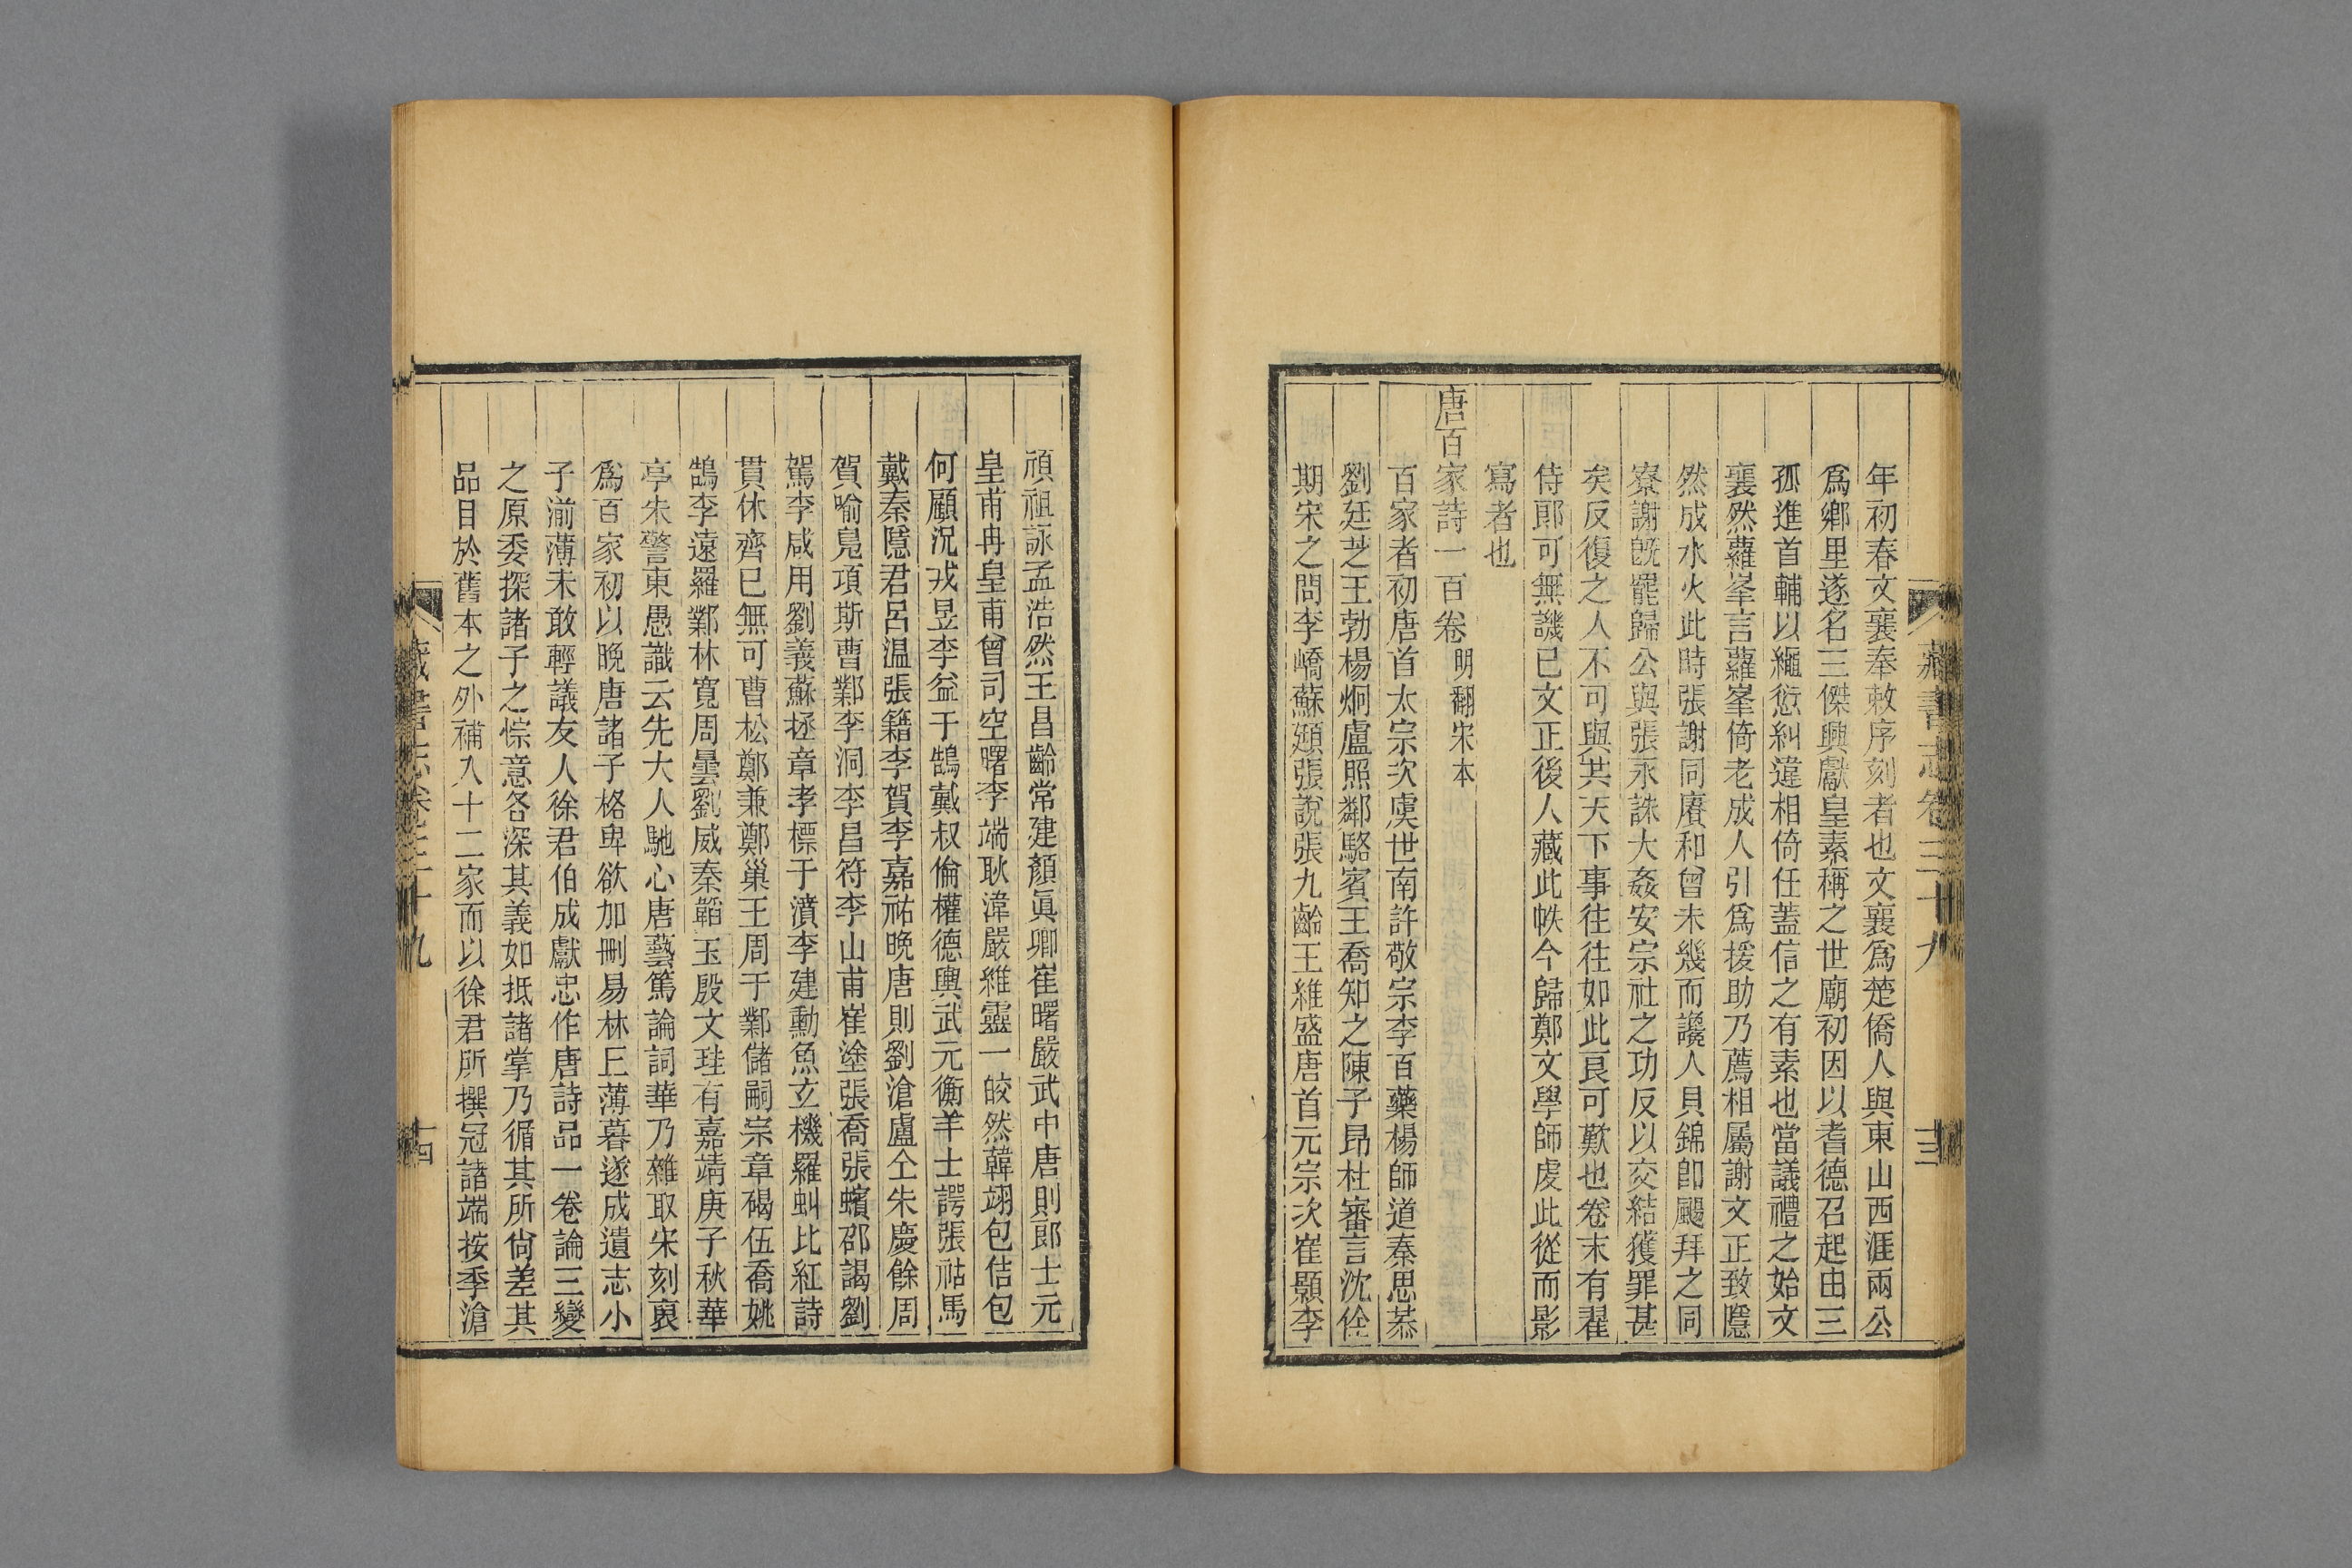 藏書志卷三十九
十三
年初春文襄奉敕序刻者也文襄爲楚僑人與東山西涯兩公
爲鄉里遂名三傑興獻皇素稱之世廟初因以耆德召起由三
孤進首輔以繩愆糾違相倚任蓋信之有素也當議禮之始文
襄然蘿峯言蘿峯倚老成人引爲援助乃薦相屬謝文正致隱
然成水火此時張謝同賡和曾未幾而讒人貝錦卽颺拜之同
寮謝旣罷歸公與張永誅大姦安宗社之功反以交結獲罪甚
矣反復之人不可與共天下事往往如此良可歎也卷末有翟
侍郎可無譏已文正後人藏此帙今歸鄭文學師虔此從而影
寫者也
唐百家詩一百卷 明翻宋本
百家者初唐首太宗次虞世南許敬宗李百藥楊師道秦思恭
劉廷芝王勃楊炯盧照鄰駱賓王喬知之陳子昂杜審言沈佺
期宋之問李嶠蘇頲張說張九齡王維盛唐首元宗次崔顥李
頎祖詠孟浩然王昌齡常建顏眞卿崔曙嚴武中唐則郎士元
皇甫冉皇甫曾司空曙李端耿湋嚴維靈一皎然韓翊包佶包
何顧況戎昱李益于鵠戴叔倫權德輿武元衡羊士諤張祜馬
戴秦隱君呂温張籍李賀李嘉祐晚唐則劉滄盧仝朱慶餘周
賀喻鳧項斯曹鄴李洞李昌符李山甫崔塗張喬張蠙邵謁劉
駕李咸用劉義蘇拯章孝標于濆李建勳魚玄機羅虬比紅詩
貫休齊已無可曹松鄭兼鄭巢王周于鄴儲嗣宗章碣伍喬姚
鵠李遠羅鄴林寬周曇劉威秦韜玉殷文珪有嘉靖庚子秋華
亭朱警東愚識云先大人馳心唐藝篤論詞華乃雜取宋刻裒
爲百家初以晚唐諸子格卑欲加刪易林日薄暮遂成遺志小
子湔薄未敢輕議友人徐君伯成獻忠作唐詩品一卷論三變
之原委探諸子之悰意各深其義如抵諸掌乃循其所尙差其
品目於舊本之外補入十二家而以徐君所撰冠諸端按季滄
藏書志卷三十九
十四